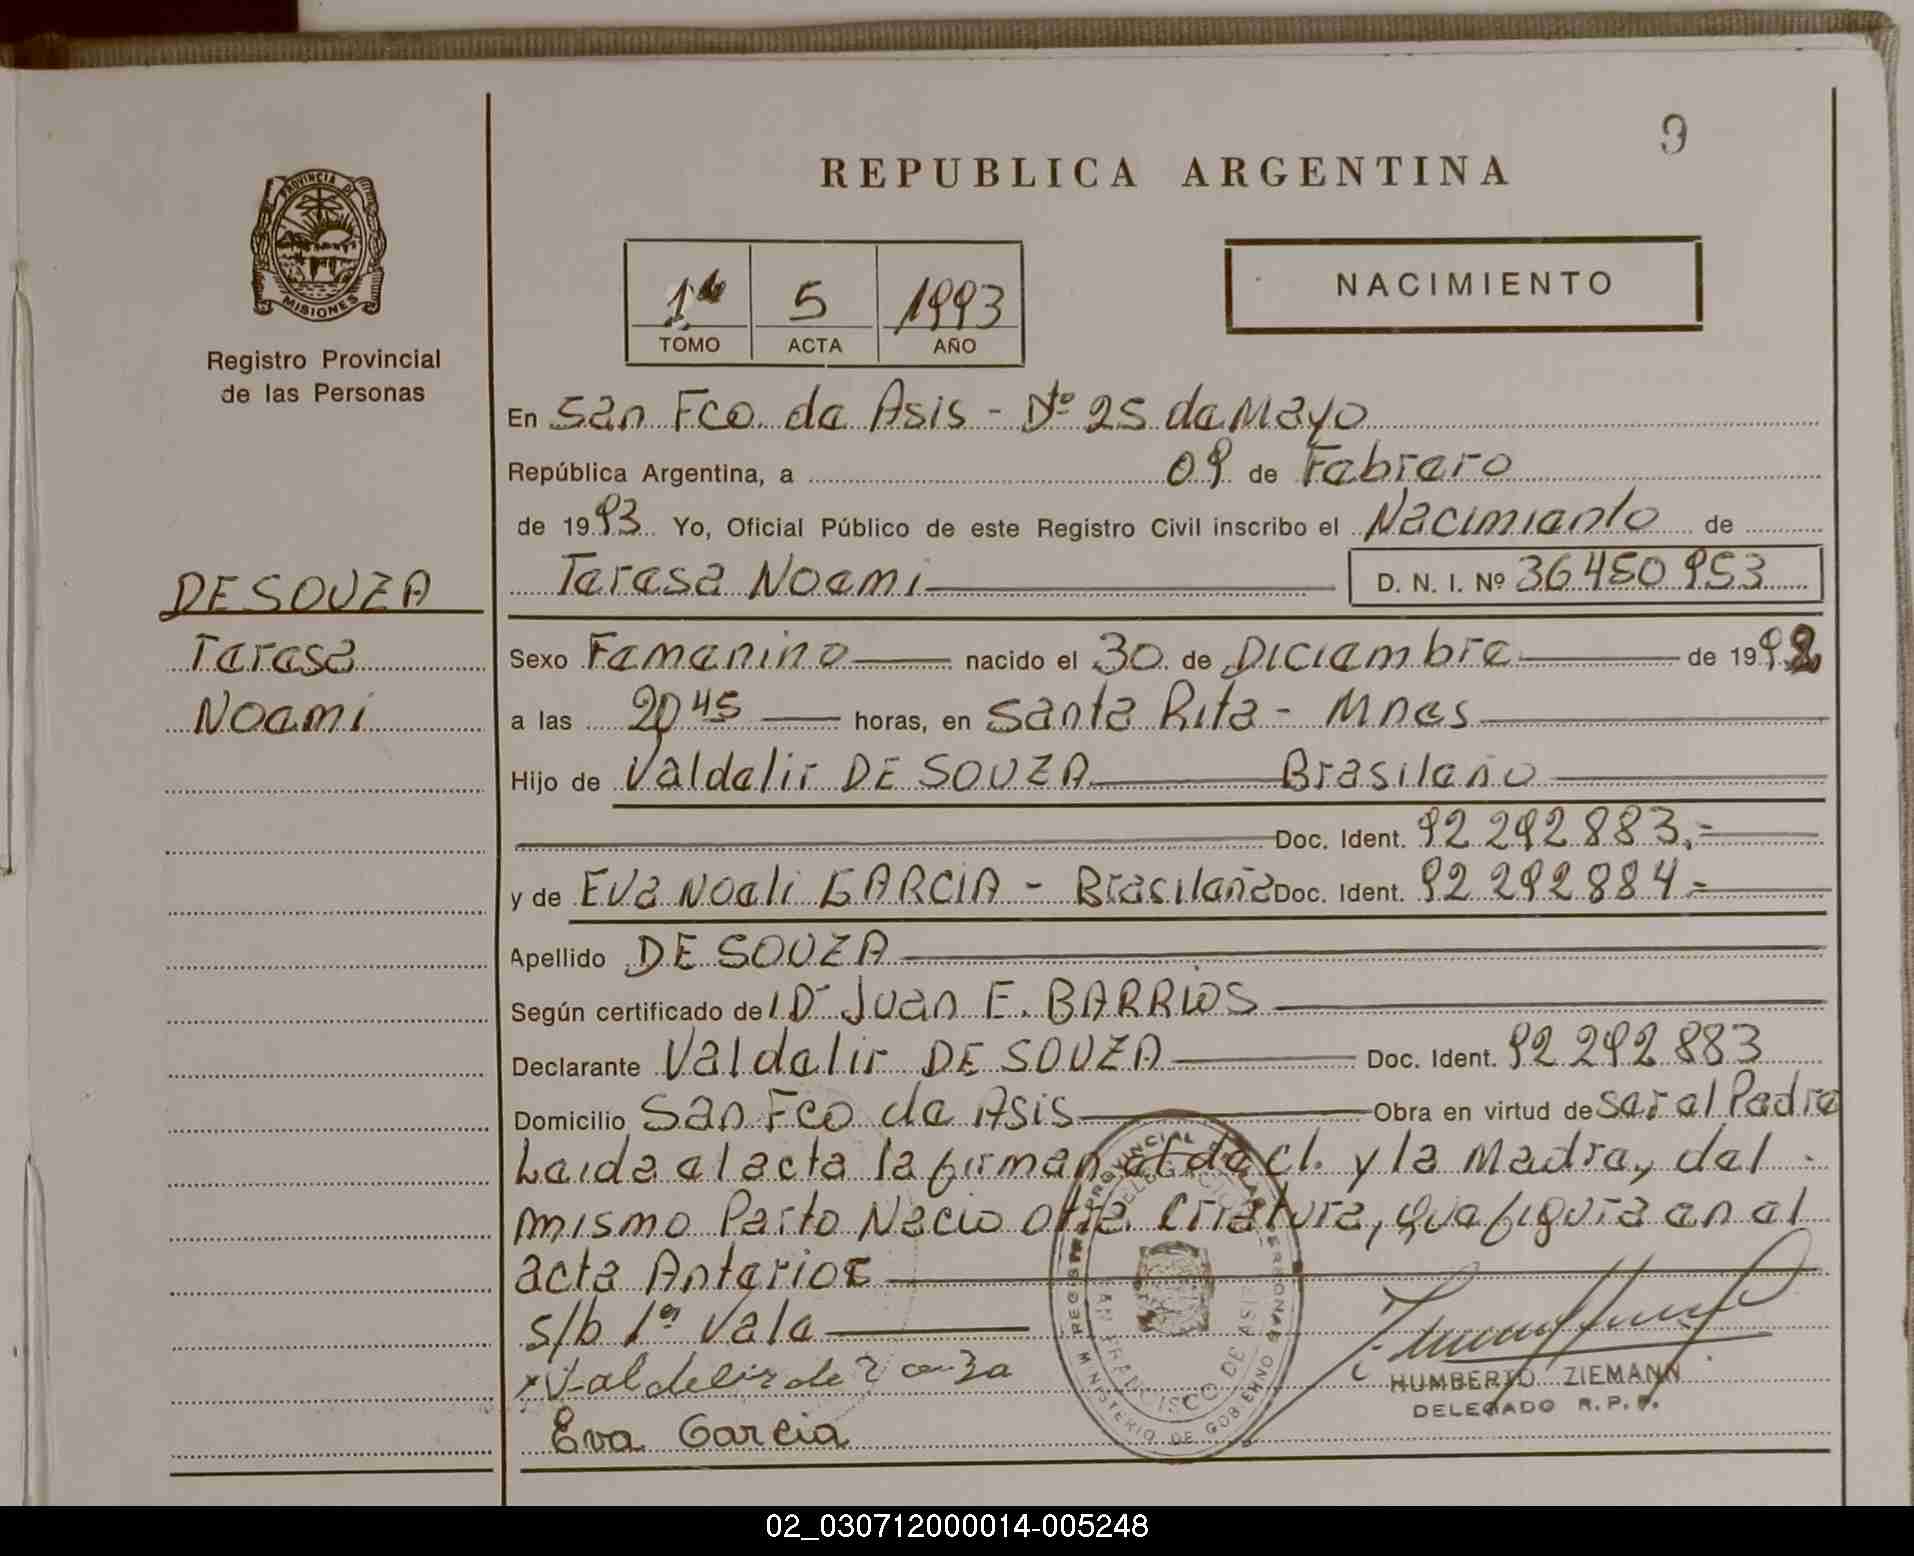 9
REPUBLICA ARGENTINA
PROVINCIA D
MISIONES
Registro Provincial
de las Personas
1º
5
1993
TOMO
ACTA
AÑO
NACIMIENTO
En San Fco. de Asis - Dto 25 de Mayo
República Argentina, a 09 de Febrero
de 1993 Yo, Oficial Público de este Registro Civil inscribo el Nacimiento de
Teresa Noemi D. N. I. Nº 36450953
DE SOUZA
Teresa
Noemi
Sexo Femenino nacido el 30 de Diciembre de 1992
a las 20 45 horas, en Santa Rita - Mnes
Hijo de Valdelir DE SOUZA Brasileño
Doc. Ident. 92 292 883.=
y de Eva Noeli GARCIA - Brasileña Doc. Ident. 92 292 884 =
Apellido DE SOUZA
Según certificado de l Dr Juan E. BARRIOS
Declarante Valdelir DE SOUZA Doc. Ident. 92 292 883
Domicilio San Fco de Asis Obra en virtud de ser el Padre
Leida el acta la firman el decl. y la Madre, del
mismo Parto Nacio otra Criatura, que figura en el
acta Anterior
s/b 1º Vale
x Valdelir de Souza
Eva Garcia
REGISTRO PROVINCIAL DE LAS PERSONAS
MINISTERIO DE GOBIERNO
DELEGACION
SAN FRANCISCO DE ASIS
HUMBERTO ZIEMANN
DELEGADO R. P. P.
02_030712000014-005248